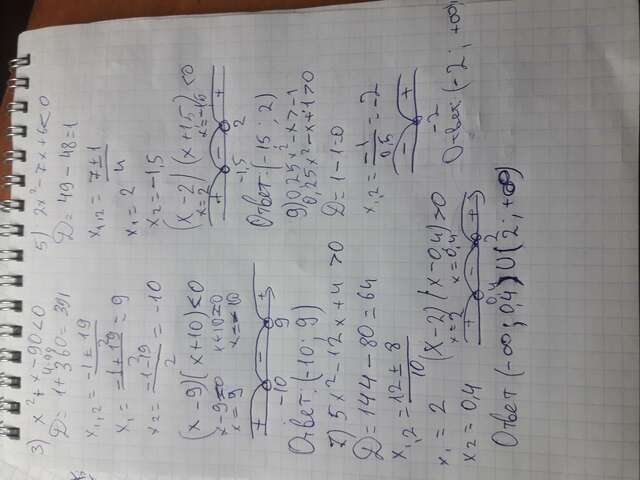 3) x² + x - 90 < 0
D = 1 + 360 = 391
x₁,₂ = -1 ± 19
x₁ = -1 + 19 / 2 = 9
x₂ = -1 - 19 / 2 = -10
(x - 9)(x + 10) < 0
x - 9 = 0 x + 10 = 0
x = 9 x = -10
+ - +
-10 9
Ответ: (-10; 9)
7) 5x² - 12x + 4 > 0
D = 144 - 80 = 64
x₁,₂ = 12 ± 8 / 10
x₁ = 2
x₂ = 0,4
(x - 2)(x - 0,4) > 0
x = 2 x = 0,4
+ - +
0,4 2
Ответ (-∞; 0,4) ∪ (2; +∞)
5) 2x² - 7x + 6 < 0
D = 49 - 48 = 1
x₁,₂ = 7 ± 1 / 4
x₁ = 2
x₂ = -1,5
(x - 2)(x + 1,5) < 0
x = 2 x = -1,5
+ - +
-1,5 2
Ответ: (-1,5; 2)
9) 0,25x² - x > -1
0,25x² - x + 1 > 0
D = 1 - 1 = 0
x₁,₂ = -1 / 0,5 = -2
- +
-2
Ответ: (-2; +∞)